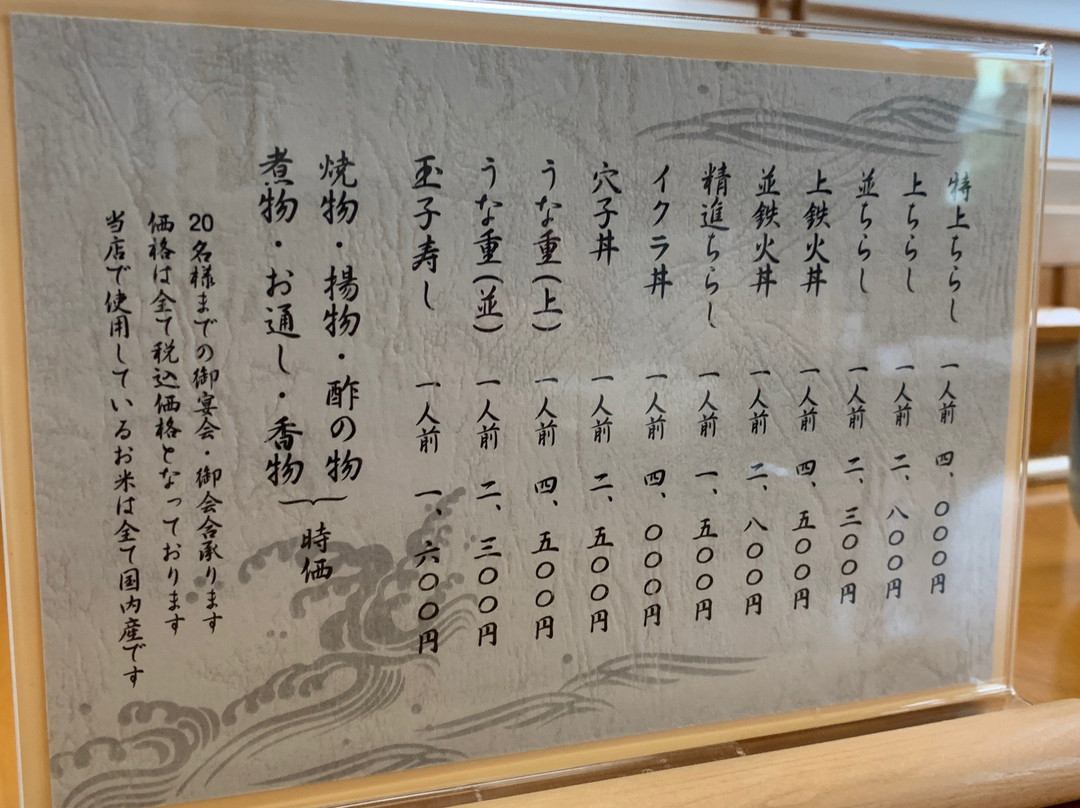 特上ちらし 一人前 四、〇〇〇円
上ちらし 一人前 二、八〇〇円
並ちらし 一人前 二、三〇〇円
上鉄火丼 一人前 四、五〇〇円
並鉄火丼 一人前 二、八〇〇円
精進ちらし 一人前 一、五〇〇円
イクラ丼 一人前 四、〇〇〇円
穴子丼 一人前 二、五〇〇円
うな重(上) 一人前 四、五〇〇円
うな重(並) 一人前 二、三〇〇円
玉子寿し 一人前 一、六〇〇円
焼物・揚物・酢の物
煮物・お通し・香物
時価
20名様までの御宴会・御会合承ります
価格は全て税込価格となっております
当店で使用しているお米は全て国内産です